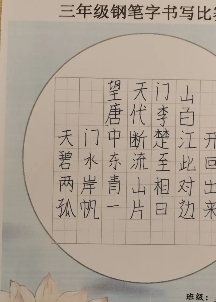 三年级钢笔字书写比
望天门山
唐代李白
天门中断楚江开
碧水东流至此回
两岸青山相对出
孤帆一片日边来
班级：